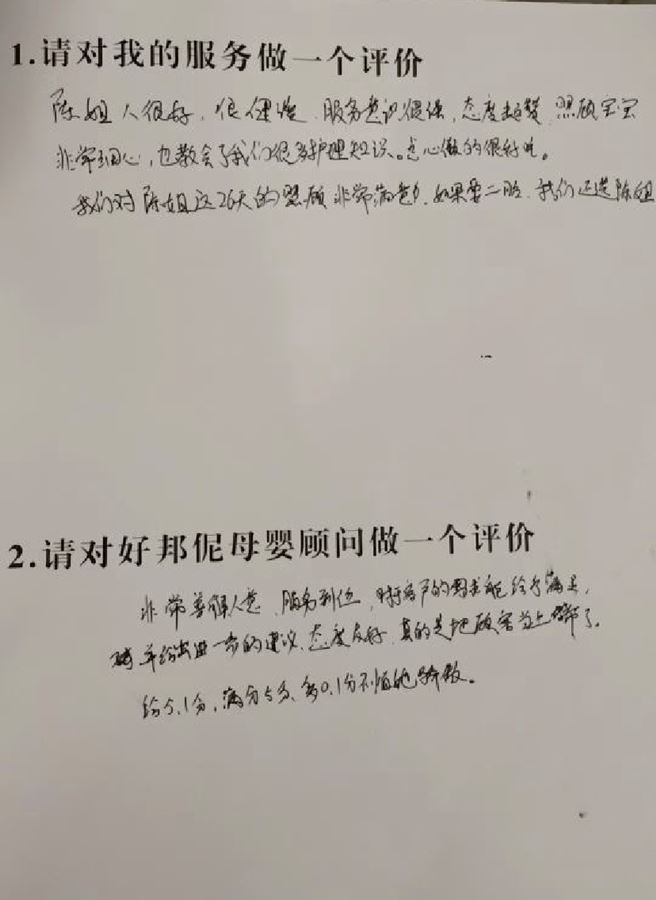 1.请对我的服务做一个评价
陈姐人很好,很健谈,服务意识很强,态度超赞,照顾宝宝
非常细心,也教会了我们很多护理知识。点心做的很好吃。
我们对陈姐这26天的照顾非常满意,如果要二胎,我们还选陈姐
2.请对好邦伲母婴顾问做一个评价
非常善解人意,服务到位,对于客户的需求能给予满足,
并给出进一步的建议,态度友好,真的是把顾客当上帝了。
给5.1分,满分5分,多0.1分不怕她骄傲。